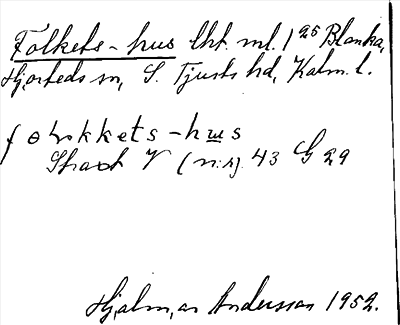 Folkets-hus lht. ml. 1²⁵ Blanka,
Hjorteds sn, S. Tjusts hd, Kalm. l.
folkkets-hus
Strax V (n:r). 43 G 29
Hjalmar Andersson 1952.